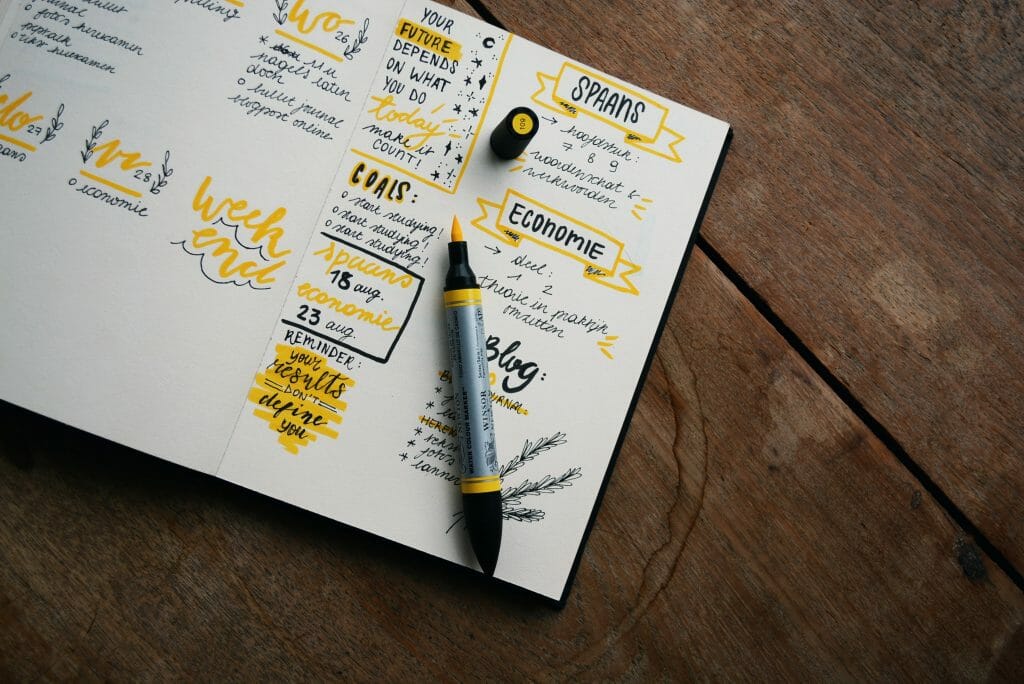 bullet
journal
o foto's herexamen
o herexamen
WO
26
nagels laten
doen
o bullet journal
blogpost online
do
27
vr
28
o economie
week
end
YOUR
FUTURE
DEPENDS
ON WHAT
YOU DO
today
make it
COUNT!
GOALS:
o start studying!
o start studying!
o start studying!
spaans
18 aug.
economie
23 aug.
REMINDER:
your
results
DON'T
define
you
109
SPAANS
→ hoofdstuk:
7 8 9
woordenschat &
werkwoorden
ECONOMIE
→ deel:
1 2
theorie in praktijk
omzetten
Blog:
WATER COLOUR MARKER
WINSOR